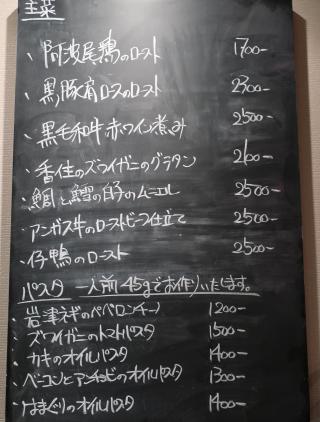 主菜
、阿波尾鶏のロースト 1700-
、黒豚肩ロースのロースト 2300-
、黒毛和牛 赤ワイン煮み 2500-
、香住のズワイガニのグラタン 2600-
、鯛と鱈の白子のムニエル 2500-
、アンガス牛のローストビーフ仕立て 2500-
、仔鴨のロースト 2500-
パスタ 一人前45gでお作りいたします。
・岩津ネギのペペロンチーノ 1200-
・ズワイガニのトマトパスタ 1500-
・カキのオイルパスタ 1400-
・ベーコンとアンチョビのオイルパスタ 1300-
・はまぐりのオイルパスタ 1400-